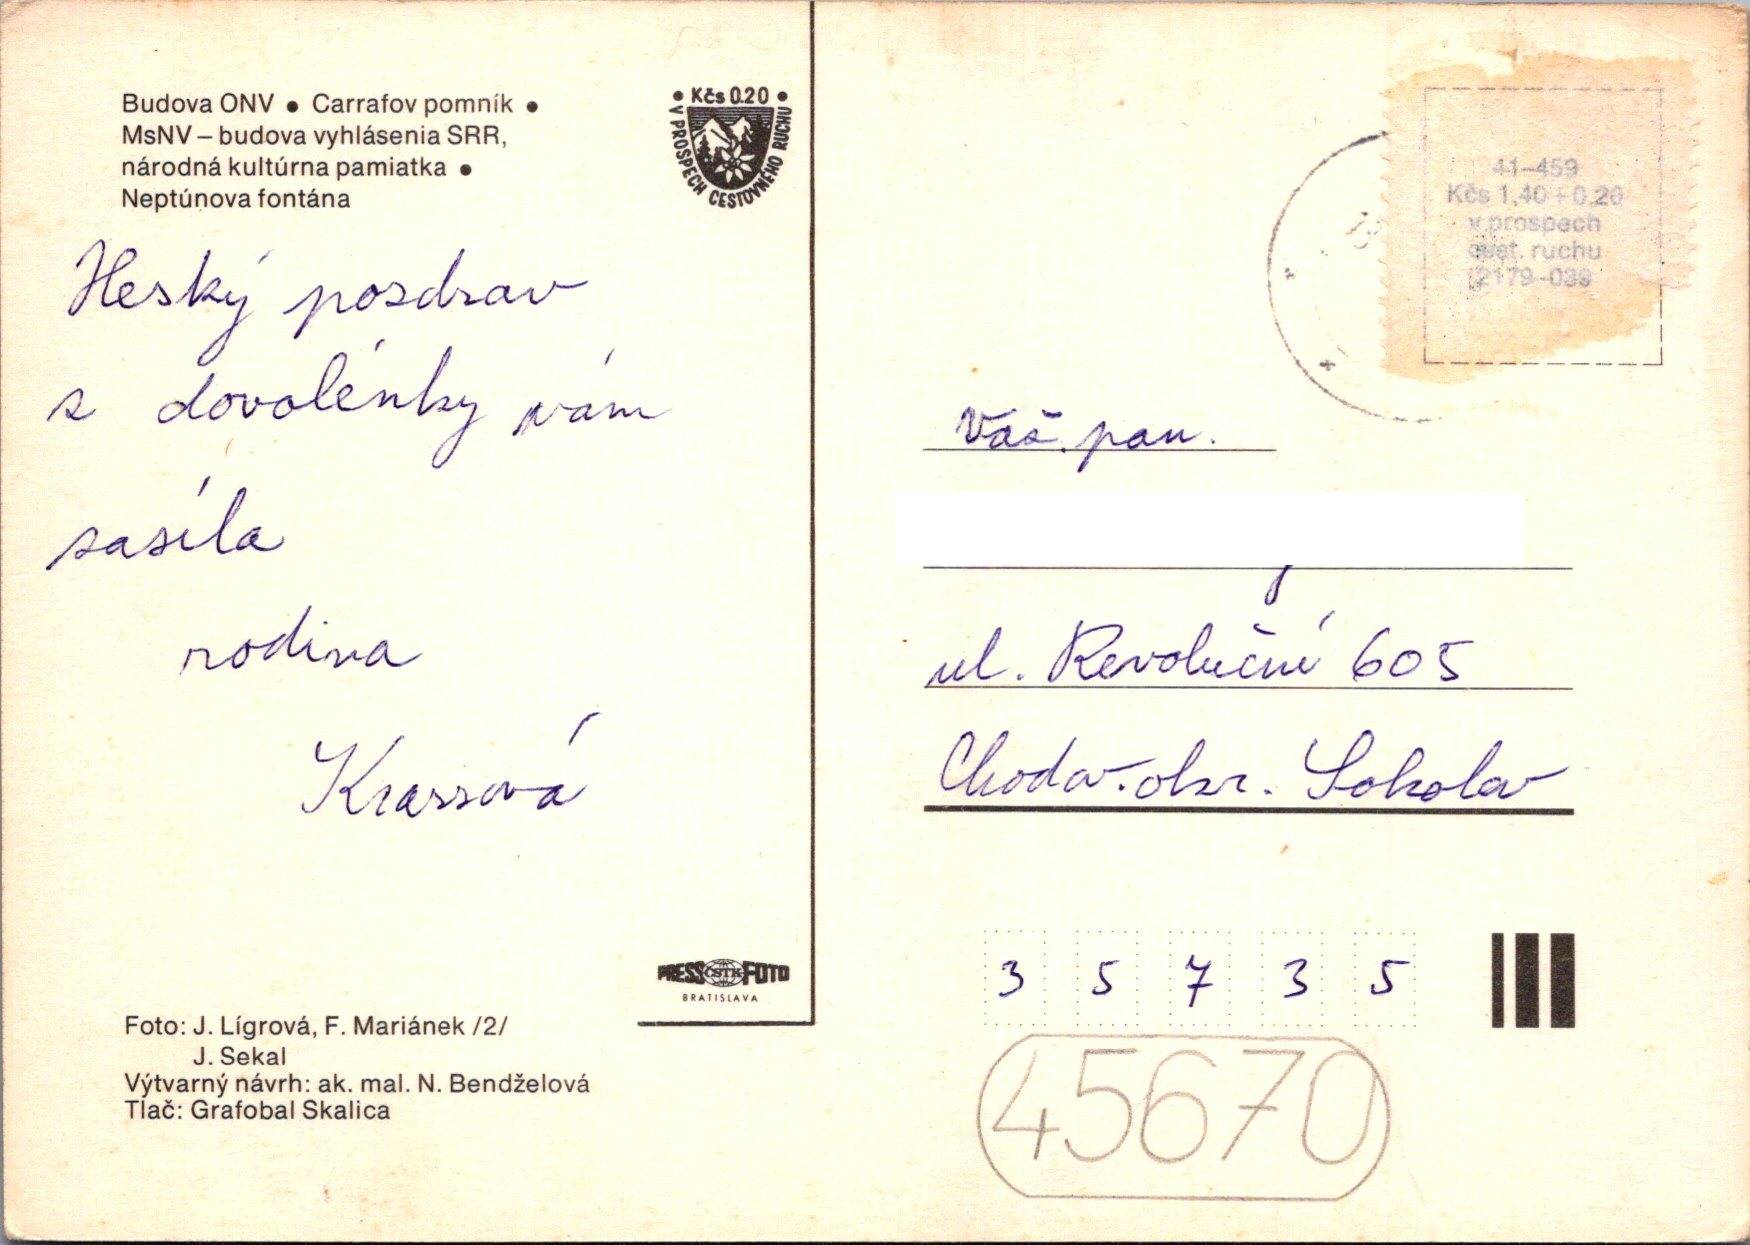 Budova ONV ● Carrafov pomník ●
MsNV – budova vyhlásenia SRR,
národná kultúrna pamiatka ●
Neptúnova fontána
• Kčs 0.20 •
V PROSPECH CESTOVNÉHO RUCHU
Heský pozdrav
z dovolénky vám
zasíla
rodina
Krassová
PRESS ČSTK FOTO
BRATISLAVA
Foto: J. Lígrová, F. Mariánek /2/
J. Sekal
Výtvarný návrh: ak. mal. N. Bendželová
Tlač: Grafobal Skalica
41–459
Kčs 1,40 + 0,20
v prospech
cest. ruchu
2179-039
Váš. pan.
ul. Revoluční 605
Chodov. okr. Sokolov
3 5 7 3 5
45670